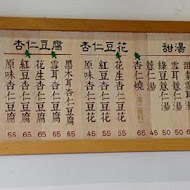 杏仁豆腐
原味杏仁豆腐 55
紅豆杏仁豆腐 65
花生杏仁豆腐 65
雪耳杏仁豆腐 65
黑木耳杏仁豆腐 65
杏仁豆花
原味杏仁豆花 45
紅豆杏仁豆花 55
花生杏仁豆花 55
杏仁燒 65
甜湯
薏仁湯
綠豆薏仁湯
雪耳薏仁湯